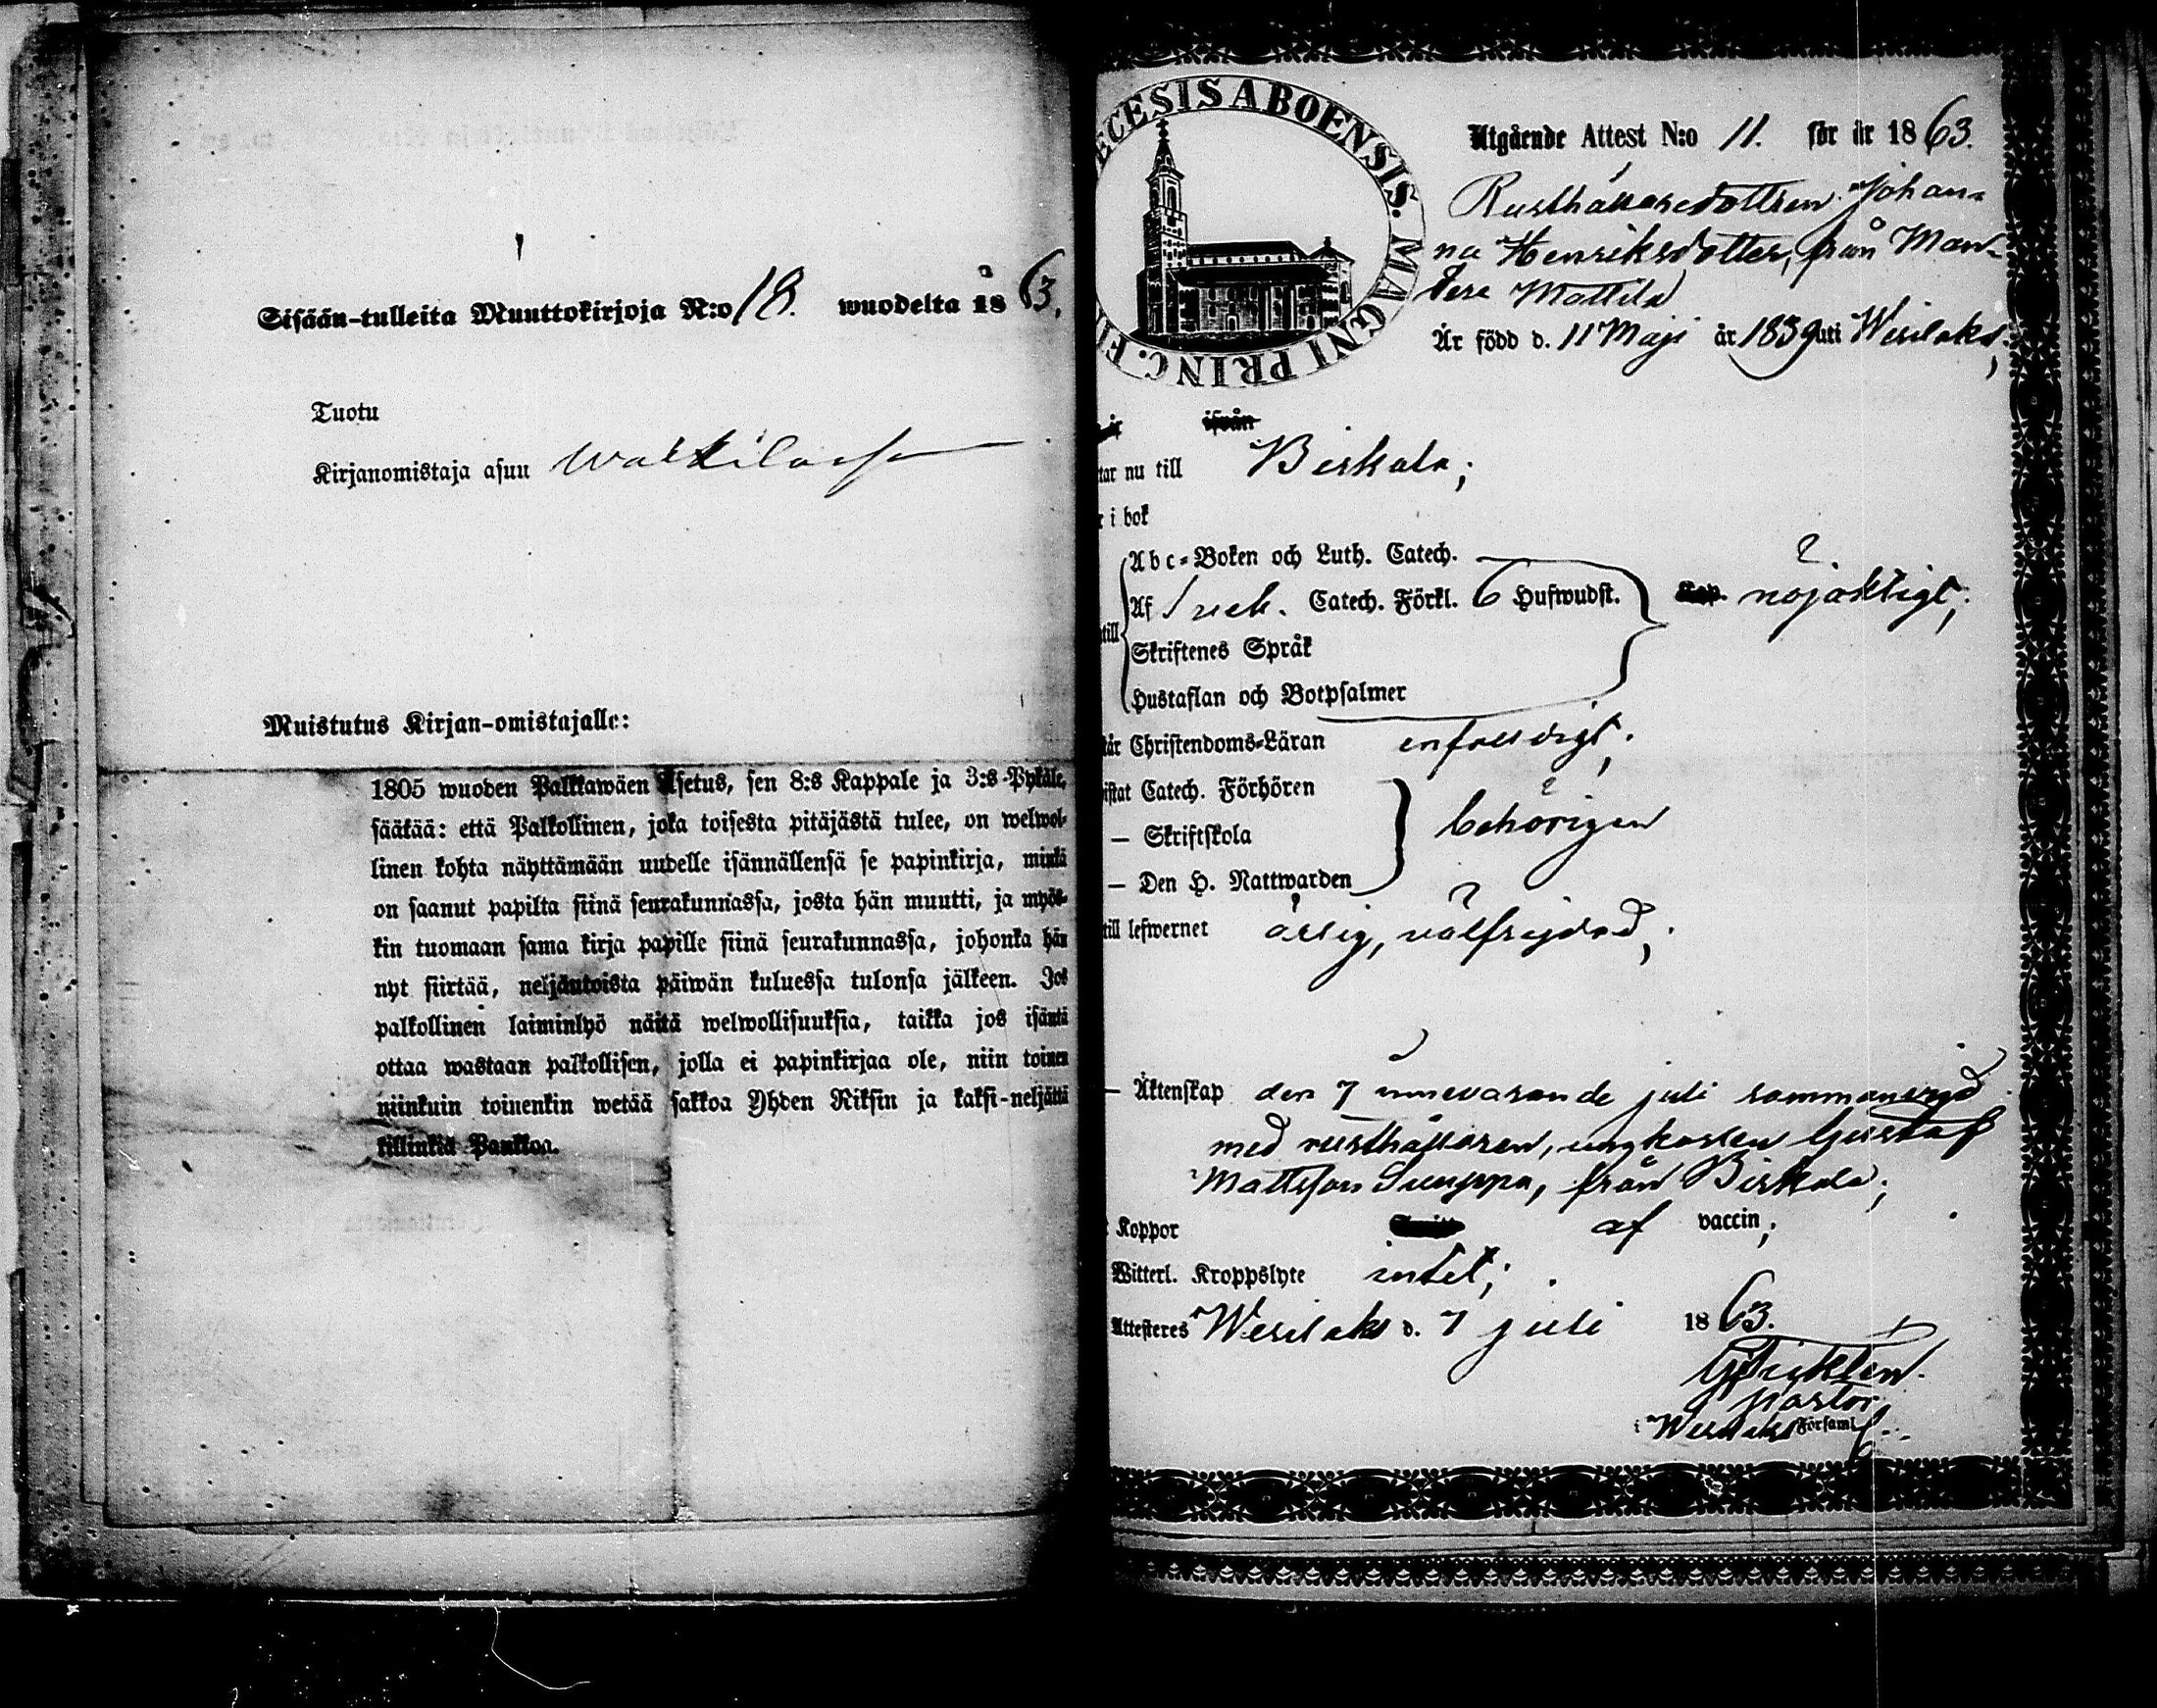 Sisään-tulleita Muuttokirjoja N:o 18. wuodelta 1863.
Tuotu
Kirjanomistaja asuu
Muistutus Kirjan-omistajalle:
1805 wuoden Palkkawäen Asetus, sen 8:s Kappale ja 3:s Pykäle,
säätää: että Palkollinen, joka toisesta pitäjästä tulee, on welwol-
linen kohta näyttämään uudelle isännällensä se papinkirja, minkä
on saanut papilta siinä seurakunnassa, josta hän muutti, ja myös-
kin tuomaan sama kirja papille siinä seurakunnassa, johonka hän
nyt siirtää, neljäntoista päiwän kuluessa tulonsa jälkeen. Jos
palkollinen laiminlyö näitä welwollisuuksia, taikka jos isäntä
ottaa wastaan palkollisen, jolla ei papinkirjaa ole, niin toinen
niinkuin toinenkin wetää sakkoa Yhden Riksin ja kaksi-neljättä
killinkiä Pankkoa.
ECESIS ABOENSIS. MAGNI PRINC. FI
Utgående Attest N:o 11. för år 1863.
Rusthållaredottren Johan-
na Henriksdotter, från Man-
tere Mattila
Är född d. 11 Maji år 1839 uti Wesilaks;
ifrån
tar nu till Birkala;
r i bok
Abc-Boken och Luth. Catech.
Af Sveb. Catech. Förkl. 6 Hufwudst. Kap. nöjaktigt;
till
Skriftenes Språk
Hustaflan och Botpsalmer
tår Christendoms-Läran enfaldigt;
istat Catech. Förhören
— Skriftskola behörigen
— Den H. Nattwarden
till lefwernet ärlig, välfrejdad;
— Äktenskap den 7 innevarande juli sammanvigd
med rusthållaren, ungkarlen Gustaf
Mattsson Suuppa, från Birkala;
Koppor af vaccin;
Witterl. Kroppslyte intet;
Attesteres Wesilaks d. 7 juli 1863.
pastor
i Wesilaks Församl.